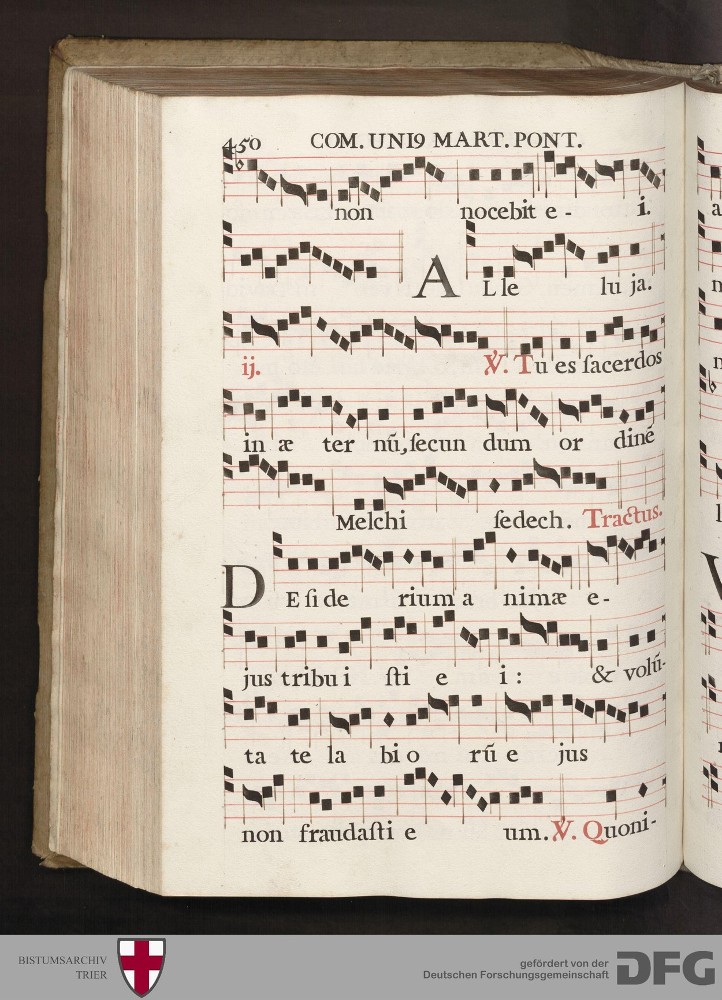 450 COM. UNI9 MART. PONT.
non nocebit e - i.
A Lle lu ja.
ij. ℣. Tu es ſacerdos
in æ ter nũ, ſecun dum or dinẽ
Melchi ſedech. Tractus.
D E ſi de rium a nimæ e -
jus tribu i ſti e i : & volũ-
ta te la bi o rũ e jus
non fraudaſti e um. ℣. Quoni-
BISTUMSARCHIV
TRIER
gefördert von der
Deutschen Forschungsgemeinschaft
DFG